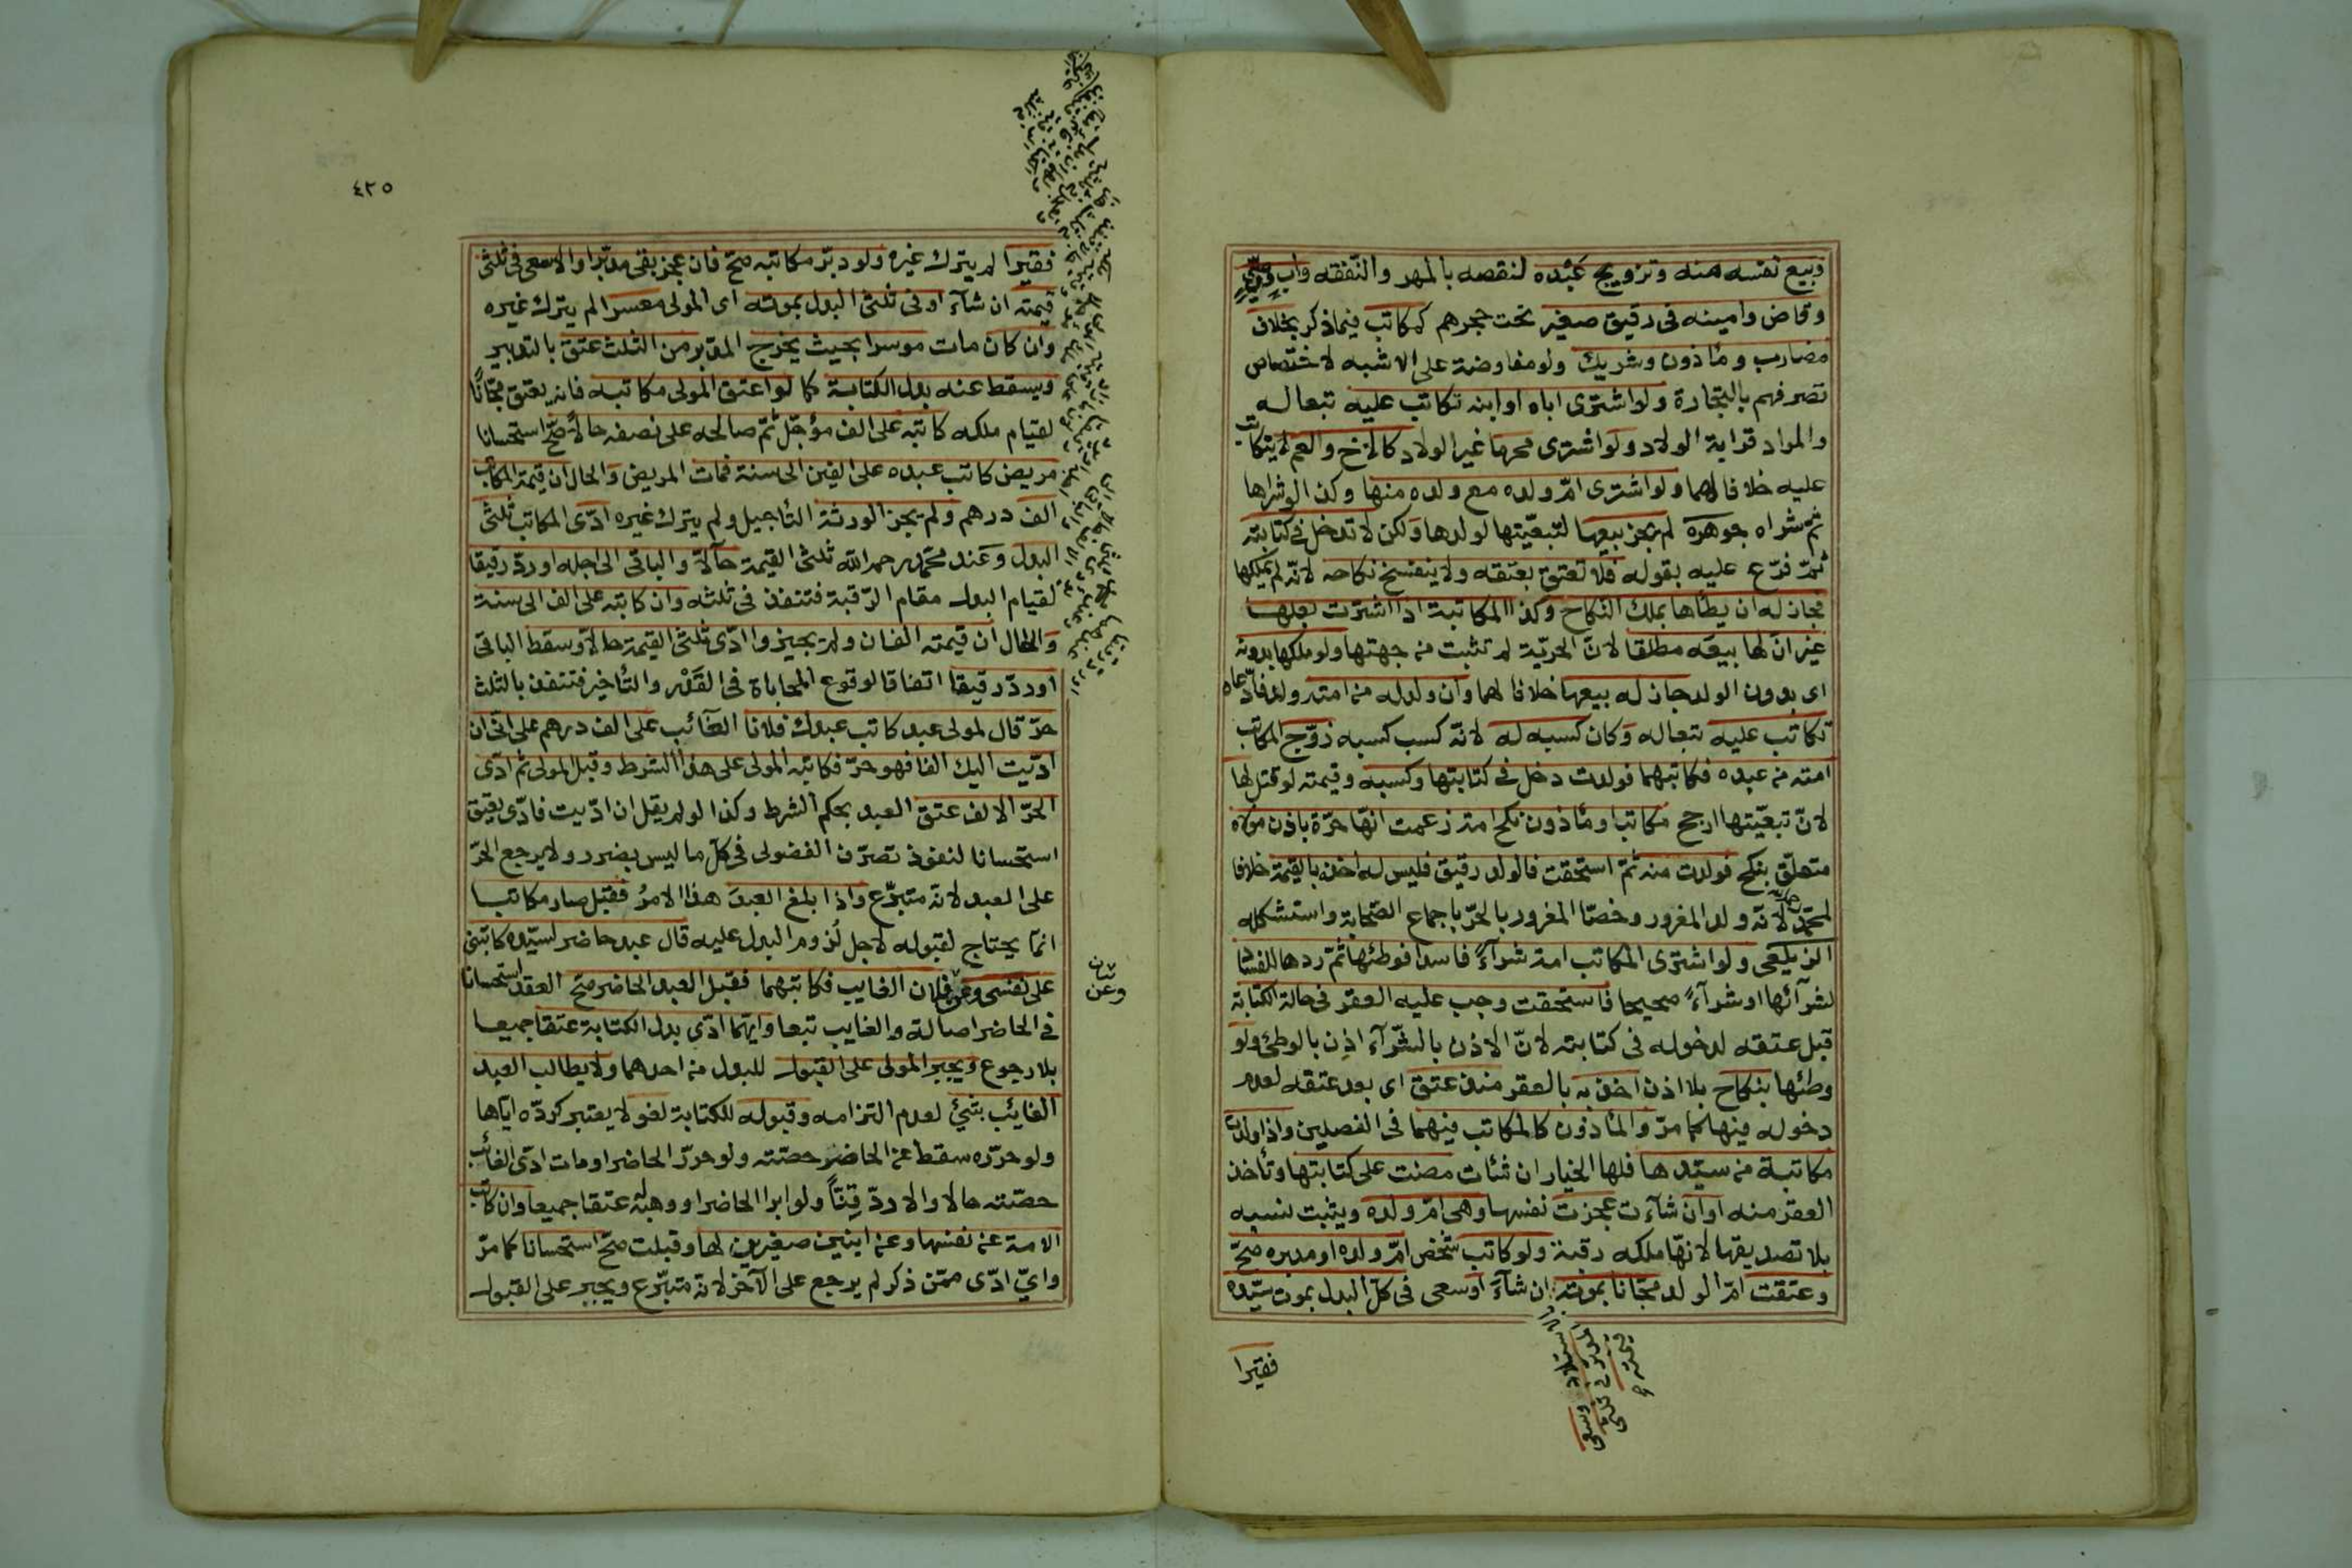 وبيع نفسه منه وتزويج عبده لنقصه بالمهر والنفقه واب ووصي
وقاض وامينه فى رقيق صغير تحت حجرهم كمكاتب فيما ذكر بخلاف
مضارب وماذون وشريك ولو مفاوضة على الاشبه لاختصاص
تصرفهم بالتجارة ولو اشترى اباه او ابنه تكاتب عليه تبعا له
والمراد قرابة الولاد ولو اشترى محرما غير الولاد كالاخ والعم لا يتكاتب
عليه خلافا لهما ولو اشترى امّ ولده مع ولده منها وكذا لو شراها
ثم شراه جوهره لم يجز بيعها لتبعيّتها لولدها ولكن لا تدخل فى كتابته
ثمّ فرّع عليه بقوله فلا تعتق بعتقه ولا ينفسخ نكاحه لانّه لم يملكها
فجاز له ان يطأها بملك النكاح وكذا المكاتبة اذا اشترت بعلها
غير انّ لها بيعه مطلقا لانّ الحريّة لم تثبت من جهتها ولو ملكها بدونه
اى بدون الولد جاز له بيعها خلافا لهما وان ولد له من امته ولد فادّعاه
تكاتب عليه تبعا له وكان كسبه له لانّه كسب كسبه زوّج المكاتب
امته من عبده فكاتبهما فولدت دخل فى كتابتها وكسبه وقيمته لو قتل لها
لانّ تبعيّتها ارجح مكاتب او مأذون نكح امة زعمت انّها حرّة باذن مولاه
متعلّق بنكح فولدت منه ثمّ استحقت فالولد رقيق فليس له اخذه بالقيمة خلافا
لمحمّد لانّه ولد المغرور وخصّا المغرور بالحرّ باجماع الصّحابة واستشكله
الزيلعى ولو اشترى المكاتب امة شرآءً فاسدا فوطئها ثمّ ردها للفساد
لشرآئها او شرآءً صحيحا فاستحقت وجب عليه العقر فى حالة الكتابة
قبل عتقه لدخوله فى كتابته لانّ الاذن بالشّرآء اذن بالوطئ ولو
وطئها بنكاح بلا اذن اخذ به بالعقر منذ عتق اى بعد عتقه لعدم
دخوله فيها كما مرّ والمأذون كالمكاتب فيهما فى الفصلين واذا ولدت
مكاتبة من سيّدها فلها الخيار ان شئات مضت على كتابتها وتأخذ
العقر منه او ان شآءت عجزت نفسها وهى امّ ولده ويثبت نسبه
بلا تصديقها لانّها ملكه رقبة ولو كاتب شخص امّ ولده او مدبره صحّ
وعتقت امّ الولد مجّانا بموته ان شآء او سعى فى كلّ البدل بموت سيّده
بالاستيلاد وسعى
المدبر فى ثلثى
قيمته
فقيرا
٤٢٥
فقيرا لم يترك غيره ولو دبّر مكاتبه صحّ فان عجز بقى مدبّرا والا سعى فى ثلثى
قيمته ان شآء او فى ثلثى البدل بموته اى المولى معسرا لم يترك غيره
وان كان مات موسرا بحيث يخرج المدبر من الثلث عتق بالتدبير
ويسقط عنه بدل الكتابة كما لو اعتق المولى مكاتبه فانه يعتق مجّانًا
لقيام ملكه كاتبه على الف مؤجّل ثمّ صالحه على نصفه حالاّ صحّ استحسانا
مريض كاتب عبده على الفين الى سنة فمات المريض والحال ان قيمة المكاتب
الف درهم ولم يجز الورثة التأجيل ولم يترك غيره ادّى المكاتب ثلثى
البدل وعند محمّد رحمه الله ثلثى القيمة حآلاّ والباقى الى اجله او ردّ رقيقا
لقيام البدل مقام الرّقبة فتنفذ فى ثلثه وان كاتبه على الف الى سنة
والحال ان قيمته الفان ولم يجيزوا ادّى ثلثى القيمة حالاّ وسقط الباقى
او ردّ رقيقا اتفاقا لوقوع المحاباة فى القدر والتأخير فتنفذ بالثلث
حرّ قال لمولى عبد كاتب عبدك فلانا الغآئب على الف درهم على انّى ان
ادّيت اليك الفا فهو حرّ فكاتبه المولى على هذا الشرط وقبل المولى ثم ادّى
الحرّ الالف عتق العبد بحكم الشرط وكذا لو لم يقل ان ادّيت فادّى يعتق
استحسانا لنفوذ تصرّف الفضولى فى كلّ ما ليس بضرر ولا يرجع الحرّ
على العبد لانّه متبرّع واذا بلغ العبدَ هذا الامرُ فقبل صار مكاتبا
انمّا يحتاج لقبوله لاجل لُزوم البدل عليه قال عبد حاضر لسيّده كاتبنى
على نفسى وعن فلان الغايب فكاتبهما فقبل العبد الحاضر صحّ العقد استحسانا
فى الحاضر اصالة والغايب تبعا وايّهما ادّى بدل الكتابة عتقا جميعا
بلا رجوع ويجبر المولى على القبول للبدل من احدهما ولا يطالب العبد
الغايئب بشئ لعدم التزامه وقبوله للكتابة لغو لا يعتبر كردّه ايّاها
ولو حرّره سقط عن الحاضر حصّته ولو حرّر الحاضر او مات ادّى الغائب
حصّته حالا والا ردّ قِنّاً ولو ابرا الحاضر او وهبه له عتقا جميعا وان كاتب
الامة عن نفسها وعن ابنين صغيرين لها وقبلت صحّ استحسانا كما مرّ
واىّ ادّى ممّن ذكر لم يرجع على الآخر لانّه متبرّع ويجبر على القبول
وعن